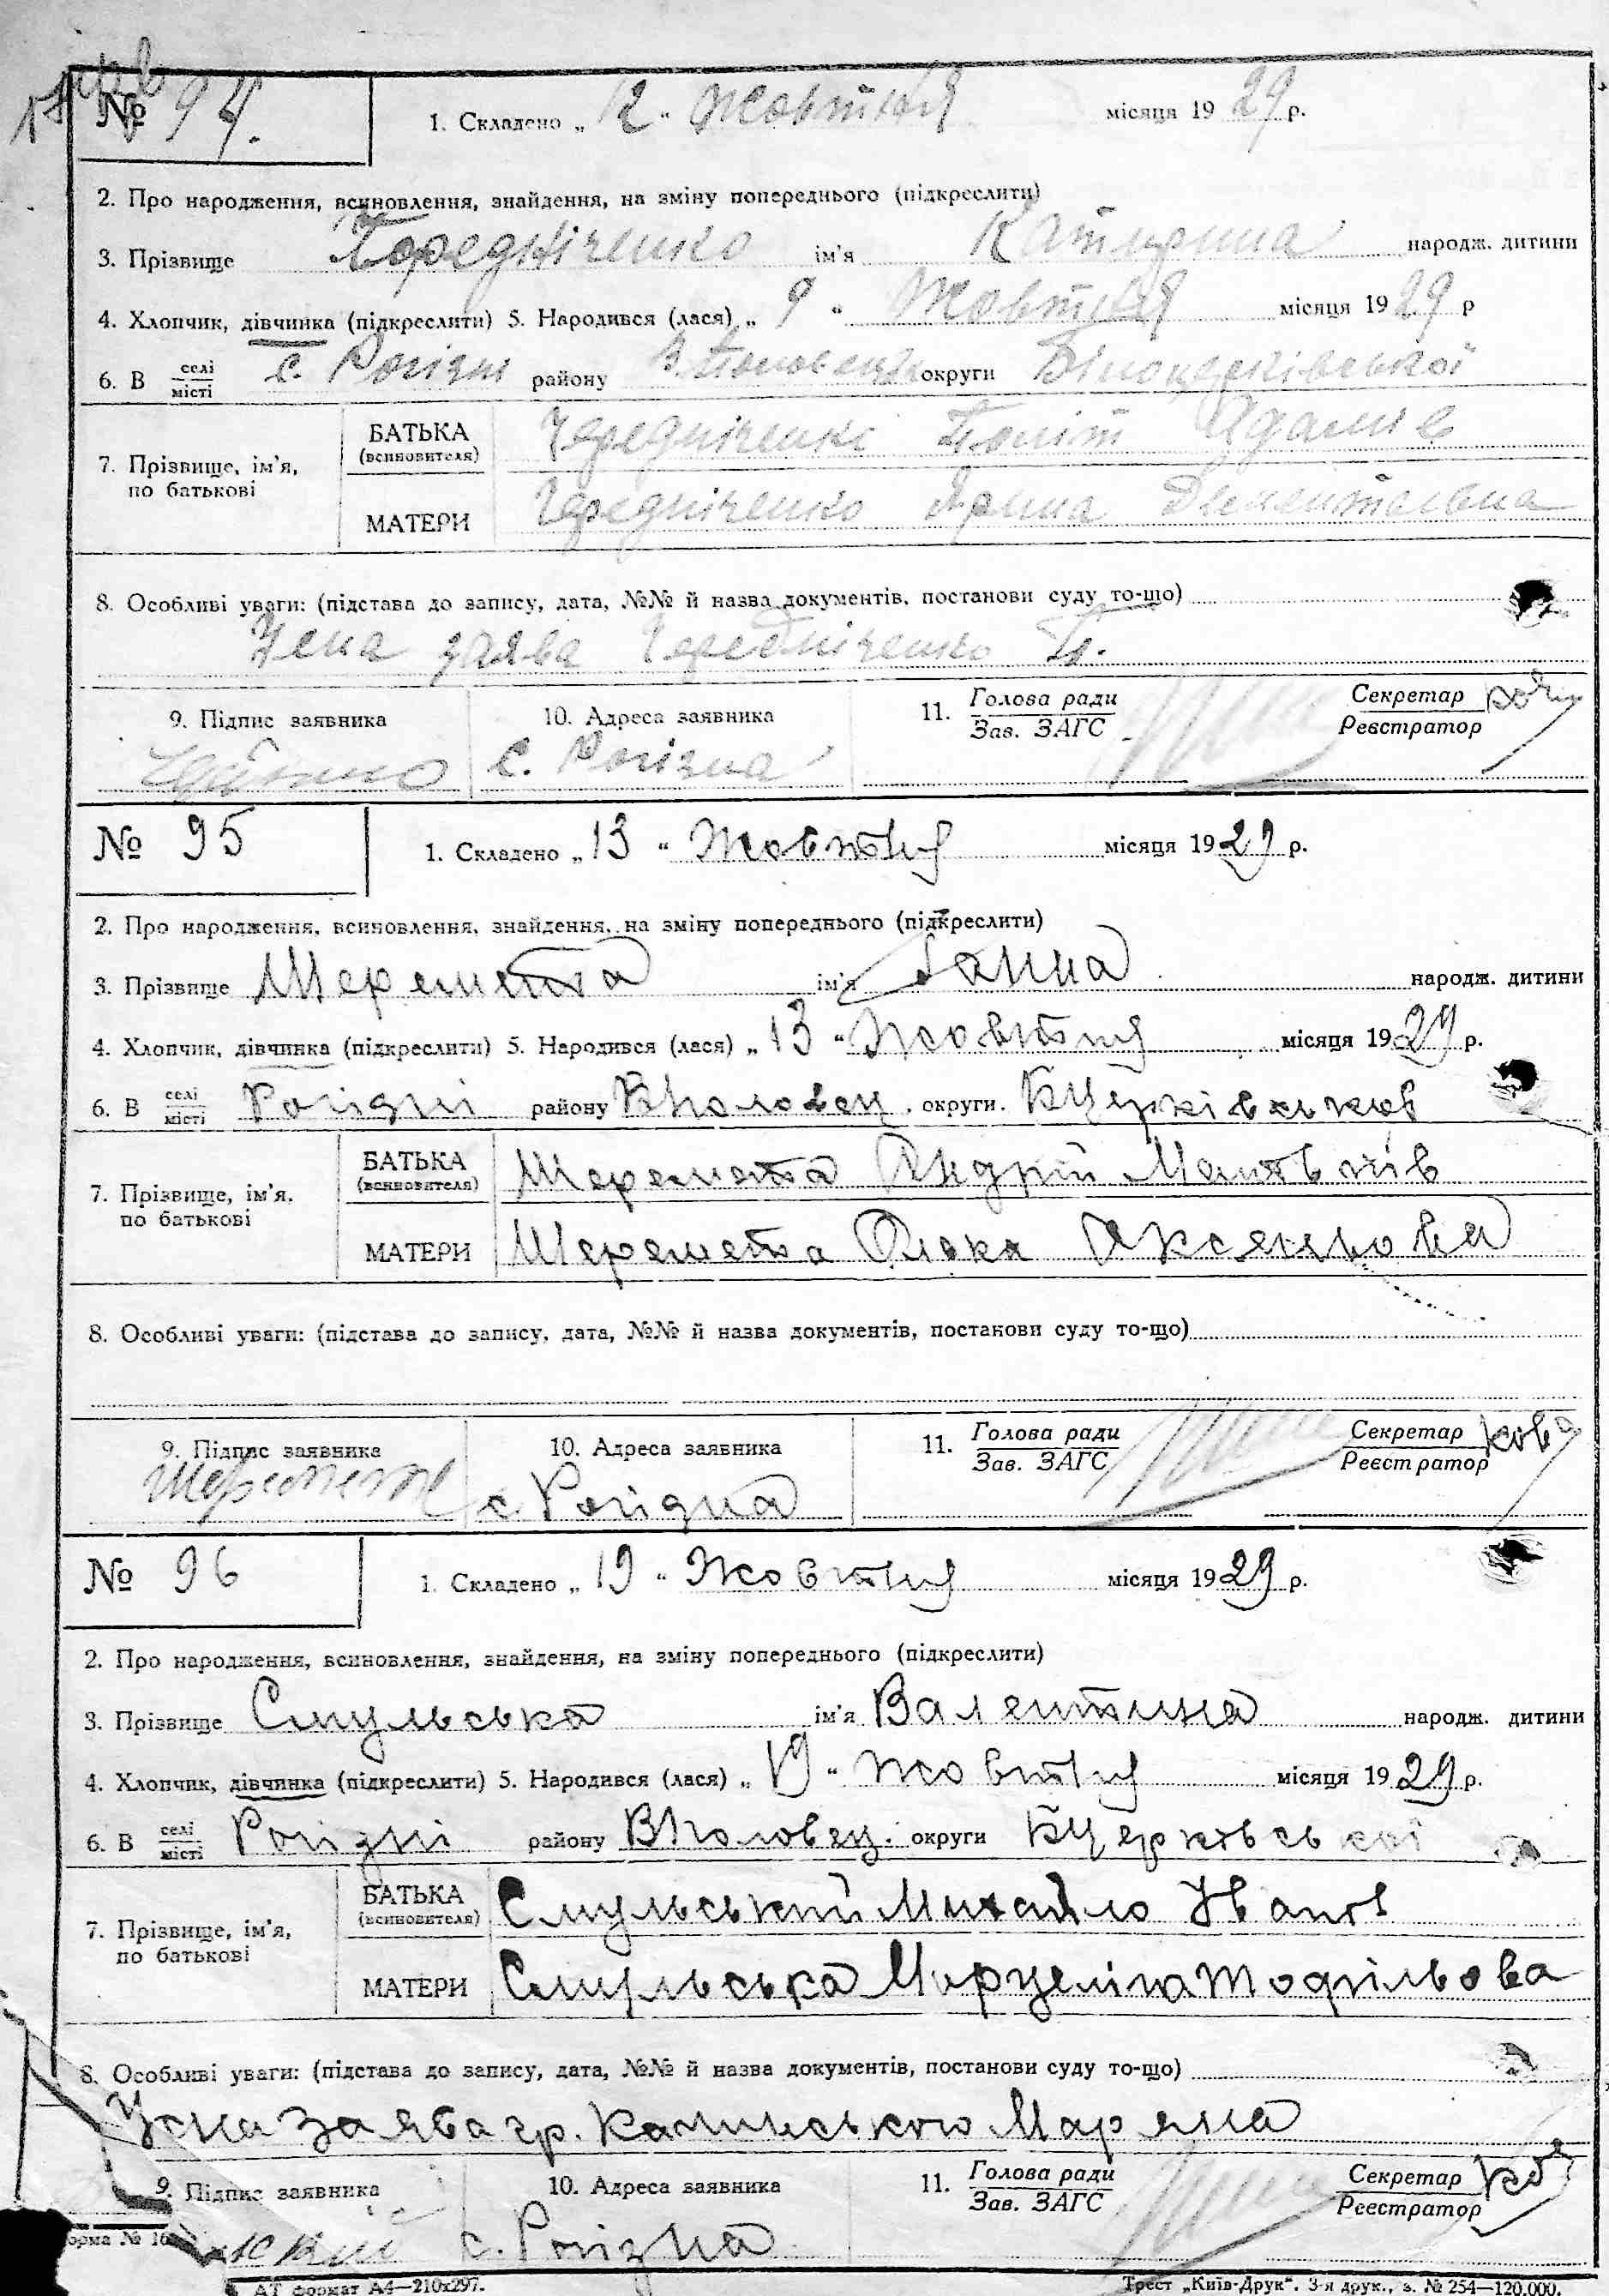 № 94.
1. Складено „ 12 “ Жовтня місяця 19 29 р.
2. Про народження, всиновлення, знайдення, на зміну попереднього (підкреслити)
3. Прізвище Чередніченко ім'я Катирина народж. дитини
4. Хлопчик, дівчинка (підкреслити) 5. Народився (лася) „ 9 “ Жовтня місяця 19 29 р
6. В селі/місті с. Рогізні району В.Половецьк округи Білоцерківської
7. Прізвище, ім'я, по батькові
БАТЬКА (всиновителя) Чередніченко Адамів
МАТЕРИ Чередніченко Ярина
8. Особливі уваги: (підстава до запису, дата, №№ й назва документів, постанови суду то-що)
Усна заява Чередніченко П.
9. Підпис заявника 10. Адреса заявника 11. Голова ради/Зав. ЗАГС Секретар/Реєстратор
с. Рогізна
№ 95
1. Складено „ 13 “ Жовтня місяця 19 29 р.
2. Про народження, всиновлення, знайдення, на зміну попереднього (підкреслити)
3. Прізвище Шеремета ім'я Ганна народж. дитини
4. Хлопчик, дівчинка (підкреслити) 5. Народився (лася) „ 13 “ Жовтня місяця 19 29 р.
6. В селі/місті Рогізні району ВПоловец. округи БЦерківської
7. Прізвище, ім'я, по батькові
БАТЬКА (всиновителя) Шеремета Андрій Матвіїв
МАТЕРИ Шеремета Аксеньова
8. Особливі уваги: (підстава до запису, дата, №№ й назва документів, постанови суду то-що)
9. Підпис заявника 10. Адреса заявника 11. Голова ради/Зав. ЗАГС Секретар/Реєстратор
Шеремета с. Рогізна
№ 96
1. Складено „ 19 “ Жовтня місяця 19 29 р.
2. Про народження, всиновлення, знайдення, на зміну попереднього (підкреслити)
3. Прізвище Смульська ім'я Валентина народж. дитини
4. Хлопчик, дівчинка (підкреслити) 5. Народився (лася) „ 19 “ Жовтня місяця 19 29 р.
6. В селі/місті Рогізні району ВПоловец. округи БЦерківської
7. Прізвище, ім'я, по батькові
БАТЬКА (всиновителя) Смульський Михайло Іванів
МАТЕРИ Смульська Марцеліна Тофільова
8. Особливі уваги: (підстава до запису, дата, №№ й назва документів, постанови суду то-що)
Усна заява гр. Калинського Маряна
9. Підпис заявника 10. Адреса заявника 11. Голова ради/Зав. ЗАГС Секретар/Реєстратор
с. Рогізна
орма № 16
АТ формат А4—210х297. Трест „Київ-Друк“. 3-я друк., з. № 254—120.000.